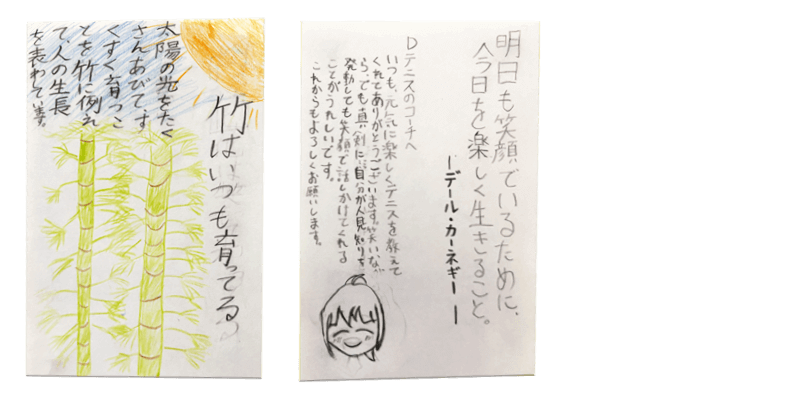 竹はいつも育ってる
太陽の光をたく
さんあびて、す
くすく育つこ
とを竹に例え
て、人の生長
を表わしています。
明日も笑顔でいるために、
今日を楽しく生きること。
ーデール・カーネギーー
Dテニスのコーチへ
いつも、元気に楽しくテニスを教えて
くれてありがとうございます。笑いなが
ら、でも真剣に、自分が人見知りを
発動しても笑顔で話しかけてくれる
ことがうれしいです。
これからもよろしくお願いします。